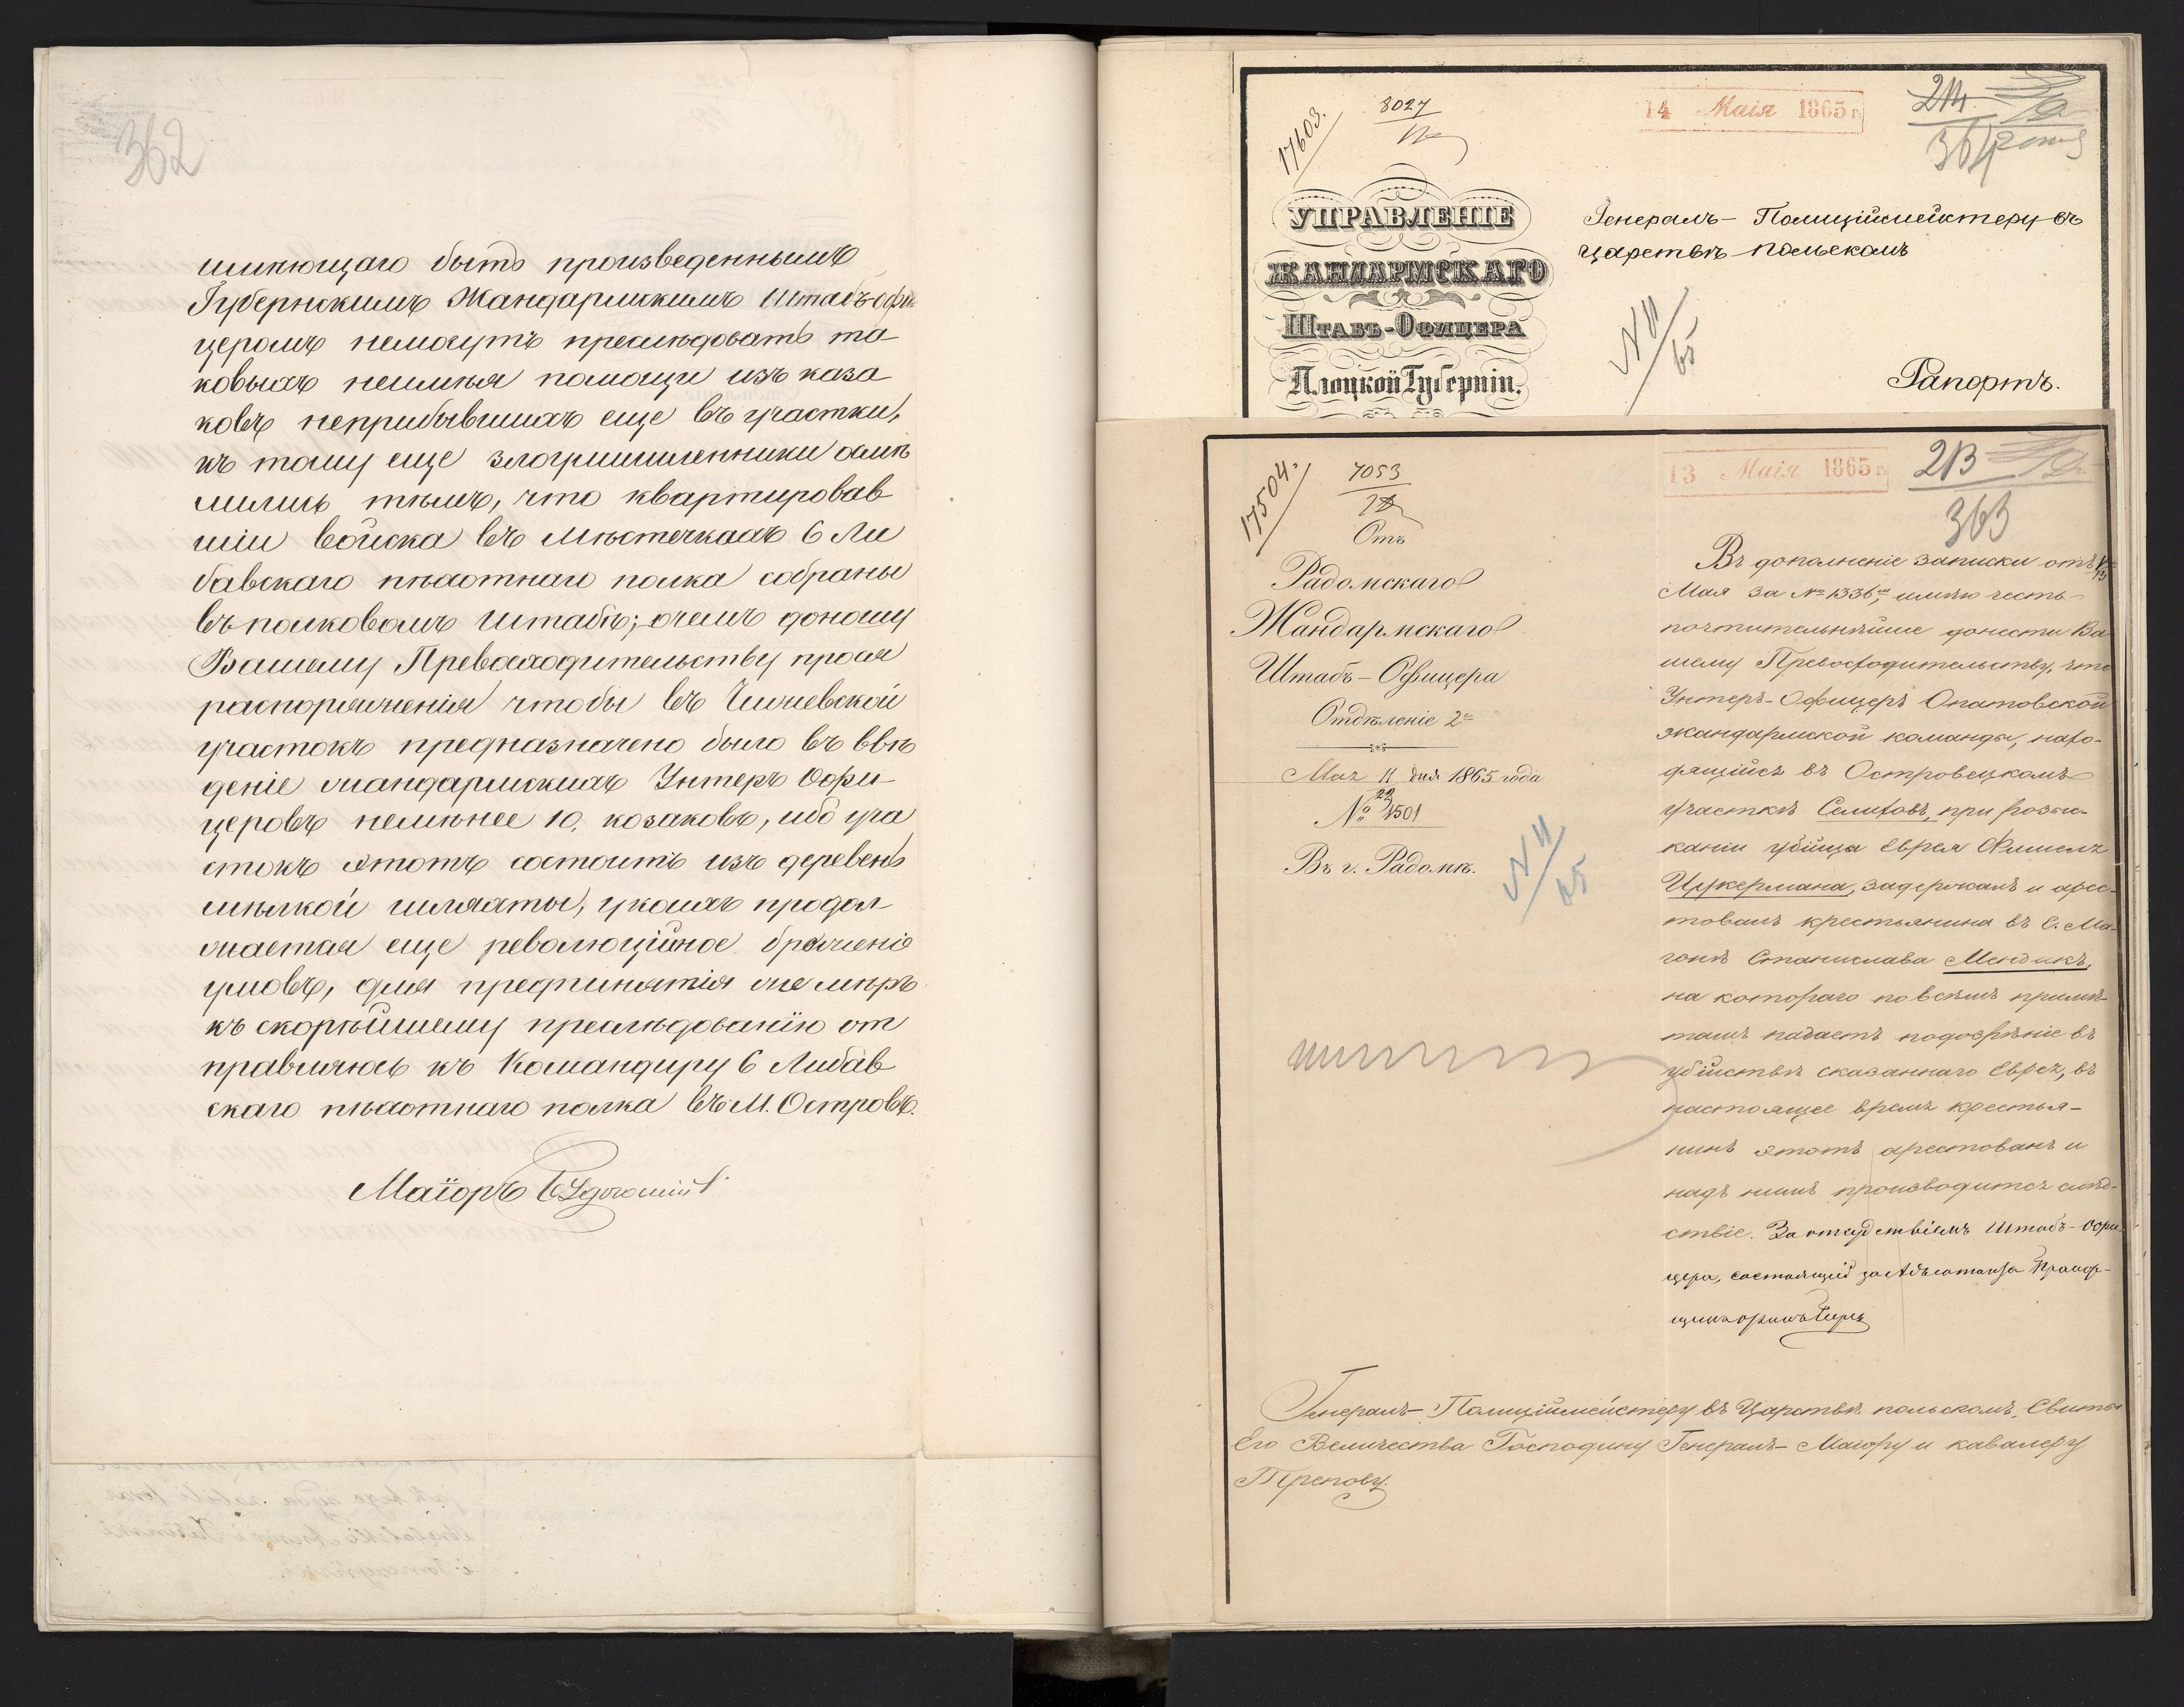 362
имѣющаго быть произведеннымъ
Губернскимъ Жандармскимъ Штабъ-офи
церомъ немогутъ преслѣдовать та
ковыхъ неимѣя помощи изъ каза
ковъ неприбывшихъ еще въ участки,
къ тому еще злоумышленники осмѣ
лились тѣмъ, что квартировав
шіи войска въ мѣстечкахъ 6 Ли
бавскаго пѣхотнаго полка собраны
въ полковомъ штабѣ; очемъ доношу
Вашему Превосходительству прося
распоряженія чтобы въ Чижевской
участокъ предназначено было въ ввѣ
деніе жандармскихъ Унтеръ Офи
церовъ неменѣе 10, козаковъ, ибо уча
стокъ этотъ состоитъ изъ деревень
мѣлкой шляхты, укоихъ продол
жается еще революційное броженіе
умовъ, для предпинятія же мѣръ
къ скорѣйшему преслѣдованію от
правляюсь къ Командиру 6 Либав
скаго пѣхотнаго полка въ М. Островъ.
Маіоръ
17603.
8027
14 Маія 1865 г.
214
364
УПРАВЛЕНІЕ
ЖАНДАРМСКАГО
Штабъ-Офицера
Плоцкой Губерніи.
Генералъ-Полиціймейстеру въ
Царствѣ Польскомъ
N 11/65
Рапортъ.
17504.
7053
13 Маія 1865 г.
213
363
Отъ
Радомскаго
Жандармскаго
Штабъ-Офицера
Отдѣленіе 2е
Мая 11 дня 1865 года
№ 1501
Въ г. Радомѣ.
N 11/65
Въ дополненіе записки отъ
Мая за № 1336м, имѣю честь
почтительнѣйше донести Ва
шему Превосходительству, что
Унтеръ-Офицеръ Опатовской
жандармской команды, нахо-
дящійся въ Островецкомъ
участкѣ Селиховъ, при розы-
каніи убійца еврея Фишеля
Цукермана, задержалъ и арес-
товалъ крестьянина въ с. Ма-
гонѣ Станислава Мендикъ,
на котораго по всѣмъ примѣ-
тамъ падаетъ подозрѣніе въ
убійствѣ сказаннаго Еврея, въ
настоящее время крестья-
нинъ этотъ арестованъ и
надъ нимъ производится слѣд-
ствіе. За отсутствіемъ Штабъ-Офи
цера, состоящій за Адъютанта
Генералъ-Полиціймейстеру въ Царствѣ польскомъ, Свиты
Его Величества Господину Генералъ-Маіору и кавалеру
Трепову.